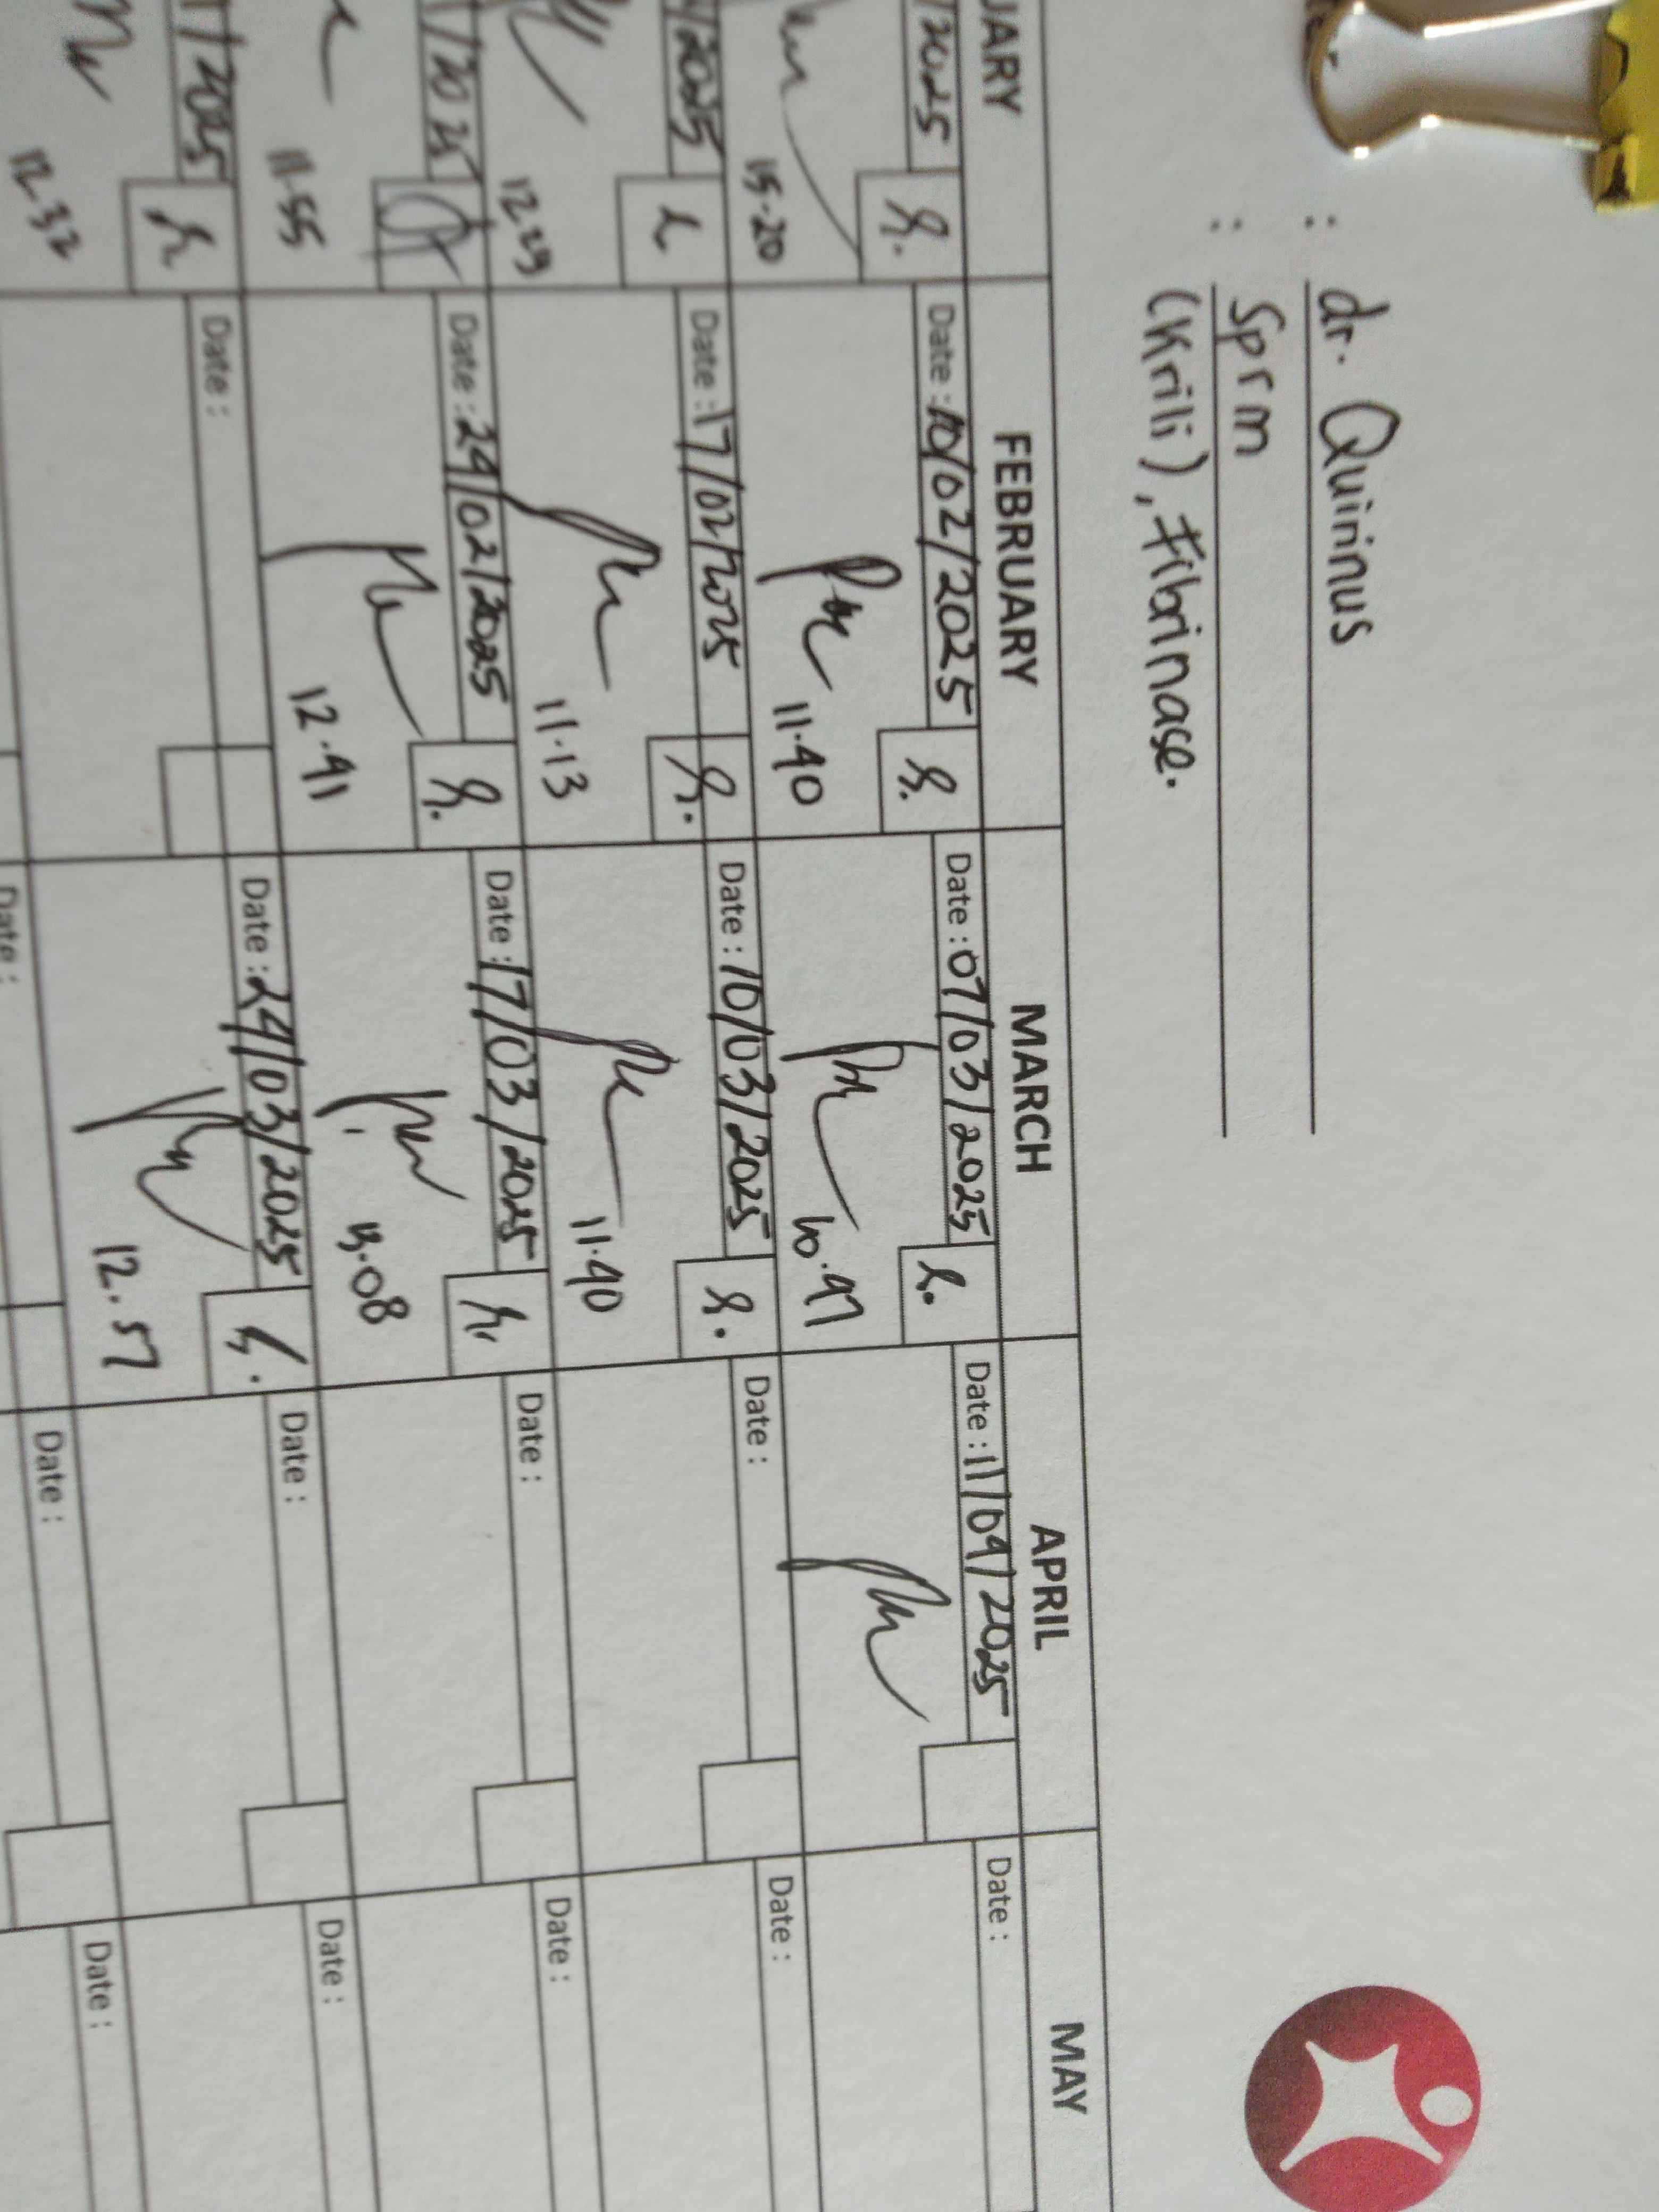 : dr. Quirinus
: Sprm
(Krili), Fibrinase.
UARY FEBRUARY MARCH APRIL MAY
/2025 Date : 10/02/2025 Date : 07/03/2025 Date : 11/04/2025 Date :
15.20 11.40 10.47
/2025 Date : 17/02/2025 Date : 10/03/2025 Date : Date :
12.29 11.13 11.40
/2025 Date : 24/02/2025 Date : 17/03/2025 Date : Date :
11.55 12.41 13.08
/2025 Date : Date : 24/03/2025 Date : Date :
12.32 12.57
Date : Date : Date :